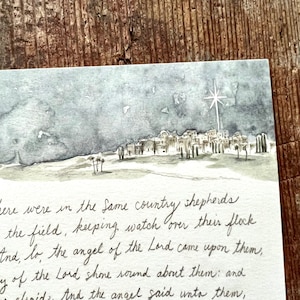 here were in the same country shepherds
the field, keeping watch over their flock
And lo, the angel of the Lord came upon them,
y of the Lord shone round about them: and
afraid. And the angel said unto them,